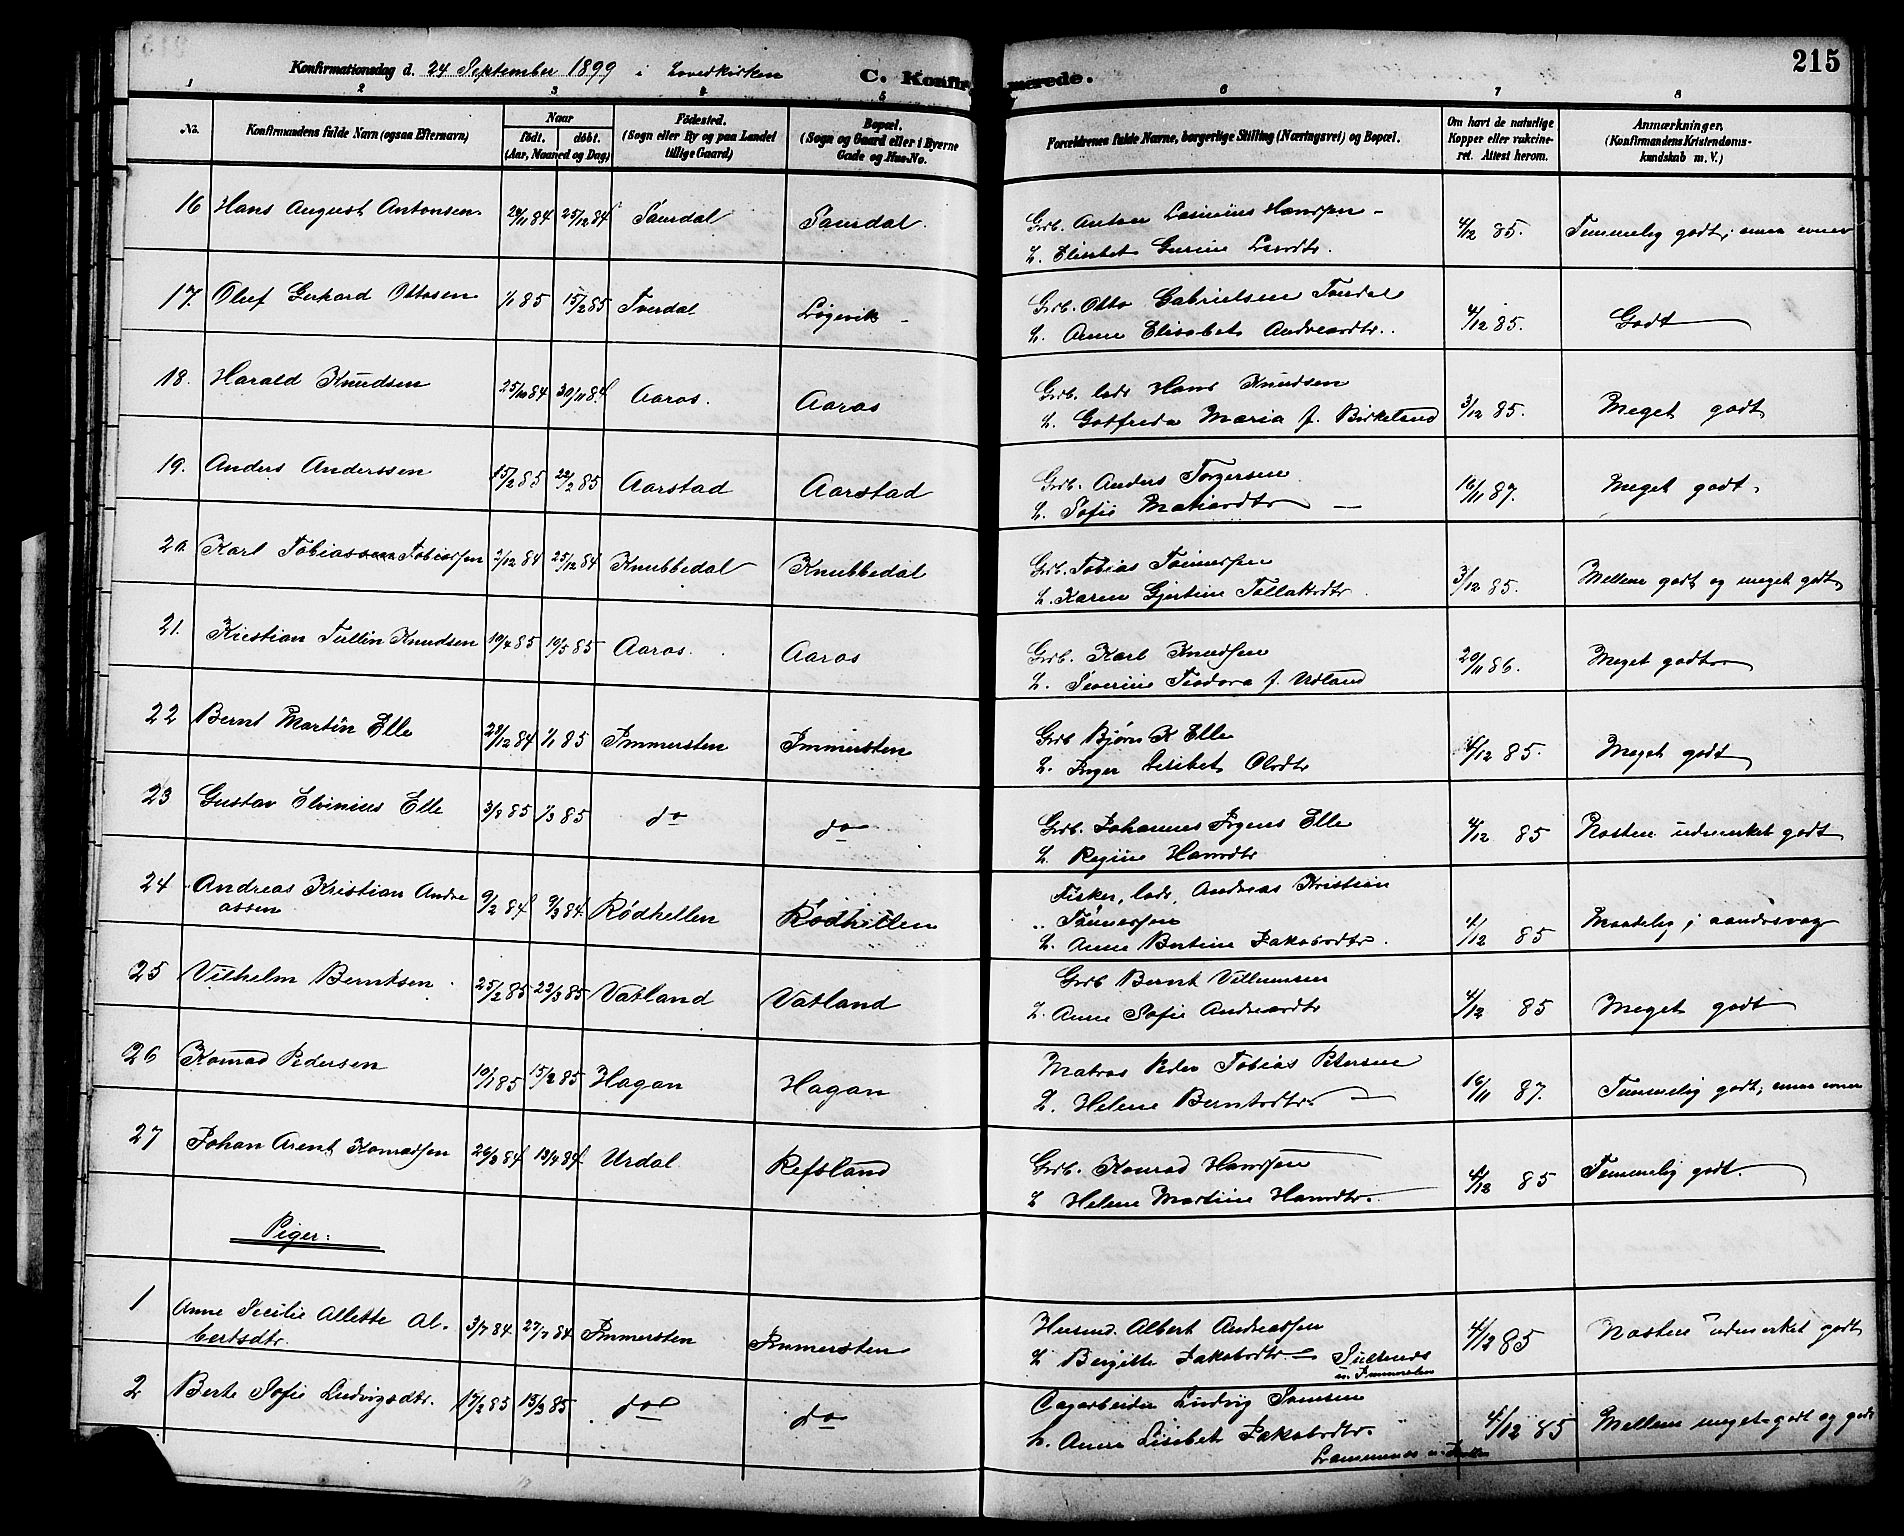 Konfirmationsdag d. 24 September 1899 i
C. Konfirmerede.
215
1 2 3 4 5 6 7 8
No.
Konfirmandens fulde Navn (ogsaa Efternavn)
Naar
født. døbt.
(Aar, Maaned og Dag)
Fødested.
(Sogn eller By og paa Landet
tillige Gaard)
Bopæl.
(Sogn og Gaard eller i Byerne
Gade og Hus-No.
Forældrenes fulde Navne, borgerlige Stilling (Næringsvei) og Bopæl.
Om havt de naturlige
Kopper eller vakcine-
ret. Attest herom.
Anmærkninger.
(Konfirmandens Kristendoms-
kundskab m. V.)
16 Hans August Antonsen 25/12 84 Saurdal Saurdal.
Grb. Anton
H. Elisabet Gurine
4/12 85. Temmelig godt; smaa evner
17. Oluf Gerhard Ottosen 1/1 85 15/2 85 Tverdal Løgevik
Grb. Otto Gabrielsen
H. Anne Elisabet Andreasdtr.
4/12 85. Godt
18. Harald Knudsen 25/10 84 30/11 84 Aaros. Aaros
Grb. lods Hans Knudsen
H. Gotfreda Maria f. Birkeland
3/12 85. Meget godt
19. Anders Anderssen 15/2 85 22/2 85 Aarstad Aarstad
Grb. Anders Torgersen
H. Sofie
16/11 87. Meget godt
20 Karl Tobiassen 2/12 84 25/12 84 Knubbedal Knubbedal
Grb. Tobias Tønnessen
H. Karen Gjertine Tollaksdtr.
3/12 85. Mellem godt og meget godt
21. Kristian Tullin Knudsen 19/4 85 10/5 85 Aaros. Aaros
Grb. Karl Knudsen
H. Severine Teodora f. Urdland
20/11 86. Meget godt
22 Bernt Martin Elle 29/12 84 1/1 85 Immersten Immersten
Grb Bjørn K Elle
H. Inger Lisebet Olsdtr
4/12 85. Meget godt
23 Gustav Elvinius Elle 1/3 85 do do
Grb. Johannes Elle
H. Regine Hansdtr
4/12 85 Næsten udmerket godt
24 Andreas Kristian Andre
assen 9/2 84 9/3 84. Rødhellen Rødhellen
Fisker, lods, Andreas Kristian
Tønnessen
H. Anne Bertine Jakobsdtr.
4/12 85 Maadelig; aandssvag
25 Vilhelm Berntsen 25/2 85 22/3 85 Vatland Vatland
Grb Bernt Villumsen
H. Anne Sofie Andreasdtr
4/12 85 Meget godt
26 Konrad Pedersen 10/1 85 15/2 85 Hagan Hagan
Matros Peder Tobias Petersen
H. Helene Berntsdtr.
16/11 87. Temmelig godt; smaa evner
27 Johan Arent Konradsen 26/3 84 13/4 84 Urdal Refsland
Grb. Konrad Hanssen
H Helene Martine Hansdtr.
4/12 85 Temmelig godt.
Piger:
1 Anne Secilie Allette Al-
bertsdtr. 3/7 84 27/7 84 Immersten Immersten
Husmd. Albert Andreassen
H Birgitte Jakobsdtr.
u. Immersten
4/12 85 Næsten udmerket godt
2 Berte Sofie Ludvigsdtr. 17/2 85 15/3 85 do do
Ludvig
H. Anne Lisebet Jakobsdtr.
4/12 85 Mellem meget godt og godt